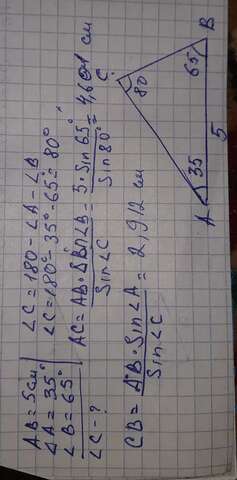 AB = 5 см
∠A = 35°
∠B = 65°
∠C - ?
∠C = 180 - ∠A - ∠B
∠C = 180° - 35° - 65° = 80°
AC = AB · Sin∠B / Sin∠C = 5 · Sin 65° / Sin 80° = см
CB = AB · Sin∠A / Sin∠C = 2,912 см
C
80
B
65
35
A
5